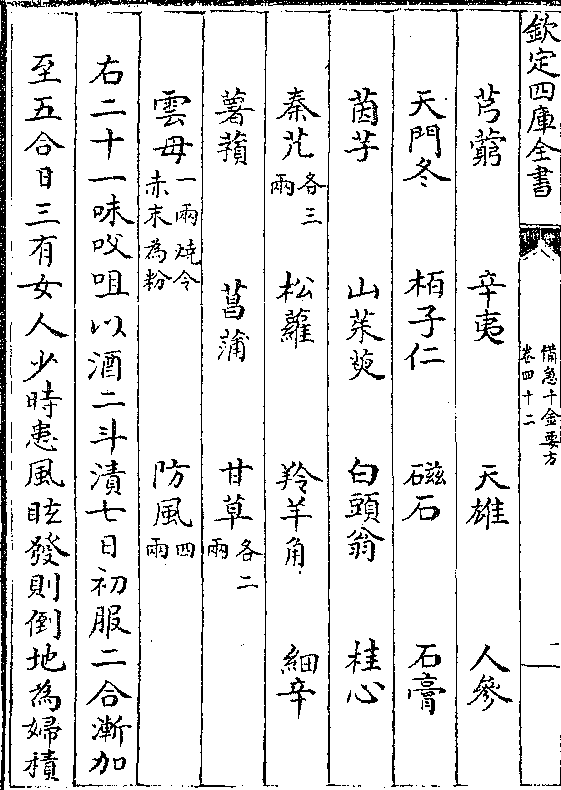 欽定四庫全書
備急千金要方
卷四十二
二
芎藭 辛夷 天雄 人參
天門冬 栢子仁 磁石 石膏
茵芋 山茱萸 白頭翁 桂心
秦艽各三兩 松蘿 羚羊角 細辛
薯蕷 菖蒲 甘草各二兩
雲母一兩燒令赤末為粉 防風四兩
右二十一味㕮咀以酒二斗漬七日初服二合漸加
至五合日三有女人少時患風眩發則倒地為婦積